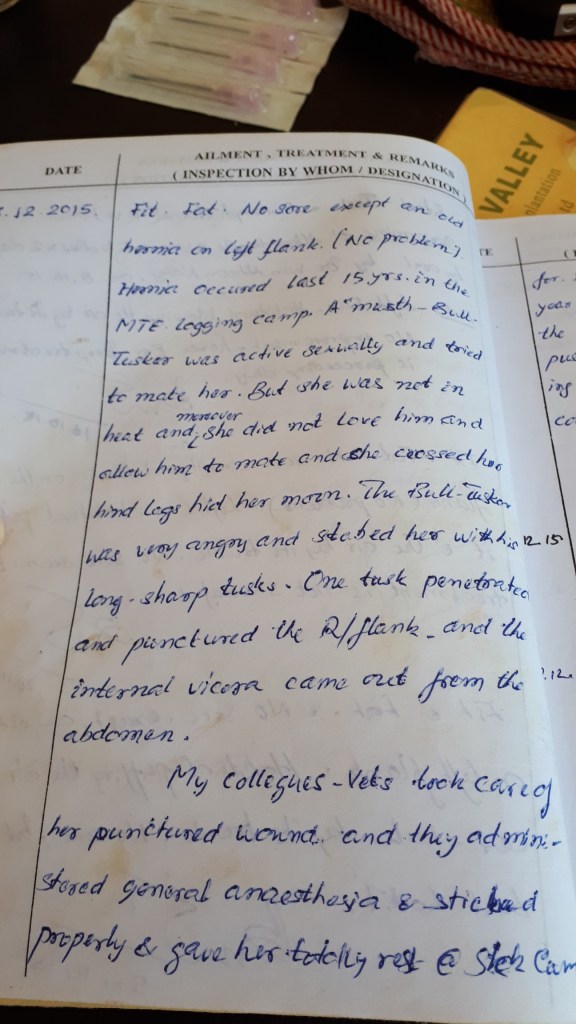 DATE
AILMENT, TREATMENT & REMARKS
( INSPECTION BY WHOM / DESIGNATION )
.12.2015.
Fit. Fat. No sore except an old
hernia on left flank. (No problem).
Hernia occured last 15 yrs. in the
MTE logging camp. A "musth-Bull-
Tusker was active sexually and tried
to mate her. But she was not in
moreover
heat and, she did not love him and
allow him to mate and she crossed her
hind legs hid her moon. The Bull-Tusker
was very angry and stabed her with his
long-sharp tusks. One tusk penetrated
and punctured the R/flank and the
internal vicera came out from the
abdomen.
My collegues-Vets took care of
her punctured wound and they admini-
stered general anaesthesia & stiched
properly & gave her totally rest @ Sick Cam
VALLEY
plantation
ld
TE
(
for.
year
the
pus
ing
co
12 15
.12.